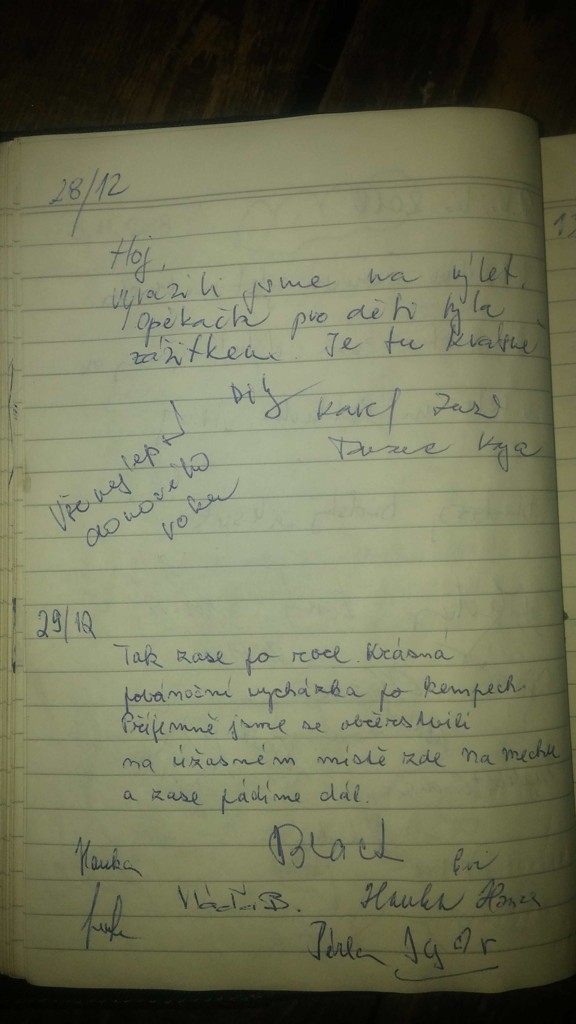 28/12
Hoj,
vyrazili jsme na výlet.
Opékačka pro děti byla
zážitkem. Je tu krásně
Díky Karel
Vše nejlepší
do nového
roku
29/12
Tak zase po roce. Krásná
povánoční vycházka po kempech.
Příjemně jsme se občerstvili
na úžasném místě zde na Mechu
a zase pádíme dál.
Hanka
Vláďa B. Hanka Honza
Igor